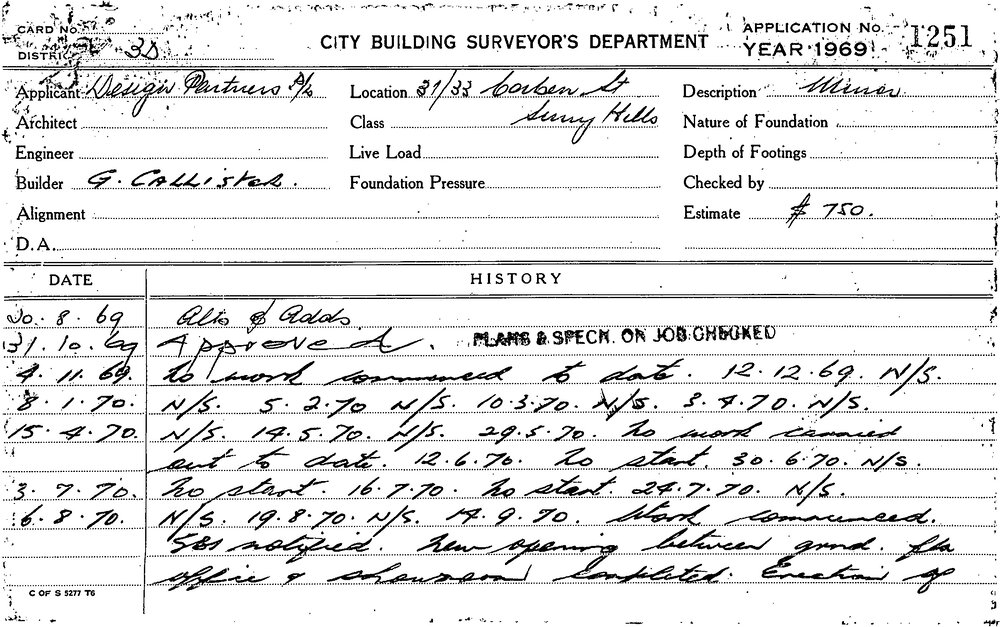 CARD No. 57
DISTRICT 3D
CITY BUILDING SURVEYOR'S DEPARTMENT
APPLICATION No. 1251
YEAR 1969
Applicant Design Partners P/L
Location 31/33 Corben St
Surry Hills
Description Minor
Architect
Class
Nature of Foundation
Engineer
Live Load
Depth of Footings
Builder G. CALLISTER.
Foundation Pressure
Checked by
Alignment
Estimate $ 750.
D.A.
DATE HISTORY
20. 8. 69 Alts & Adds
31. 10. 69 Approved. PLANS & SPECN. ON JOB CHECKED
4. 11. 69. No work commenced to date. 12.12.69. N/S.
8. 1. 70. N/S. 5.2.70 N/S. 10.3.70. N/S. 3.4.70. N/S.
15. 4. 70. N/S. 14.5.70. N/S. 29.5.70. No work carried
out to date. 12.6.70. No start. 30.6.70. N/S.
3. 7. 70. No start. 16.7.70. No start. 24.7.70. N/S.
6. 8. 70. N/S. 19.8.70. N/S. 14.9.70. Work commenced.
SBS notified. New opening between grnd. flr
office & showroom completed. Erection of
C OF S 5277 T6